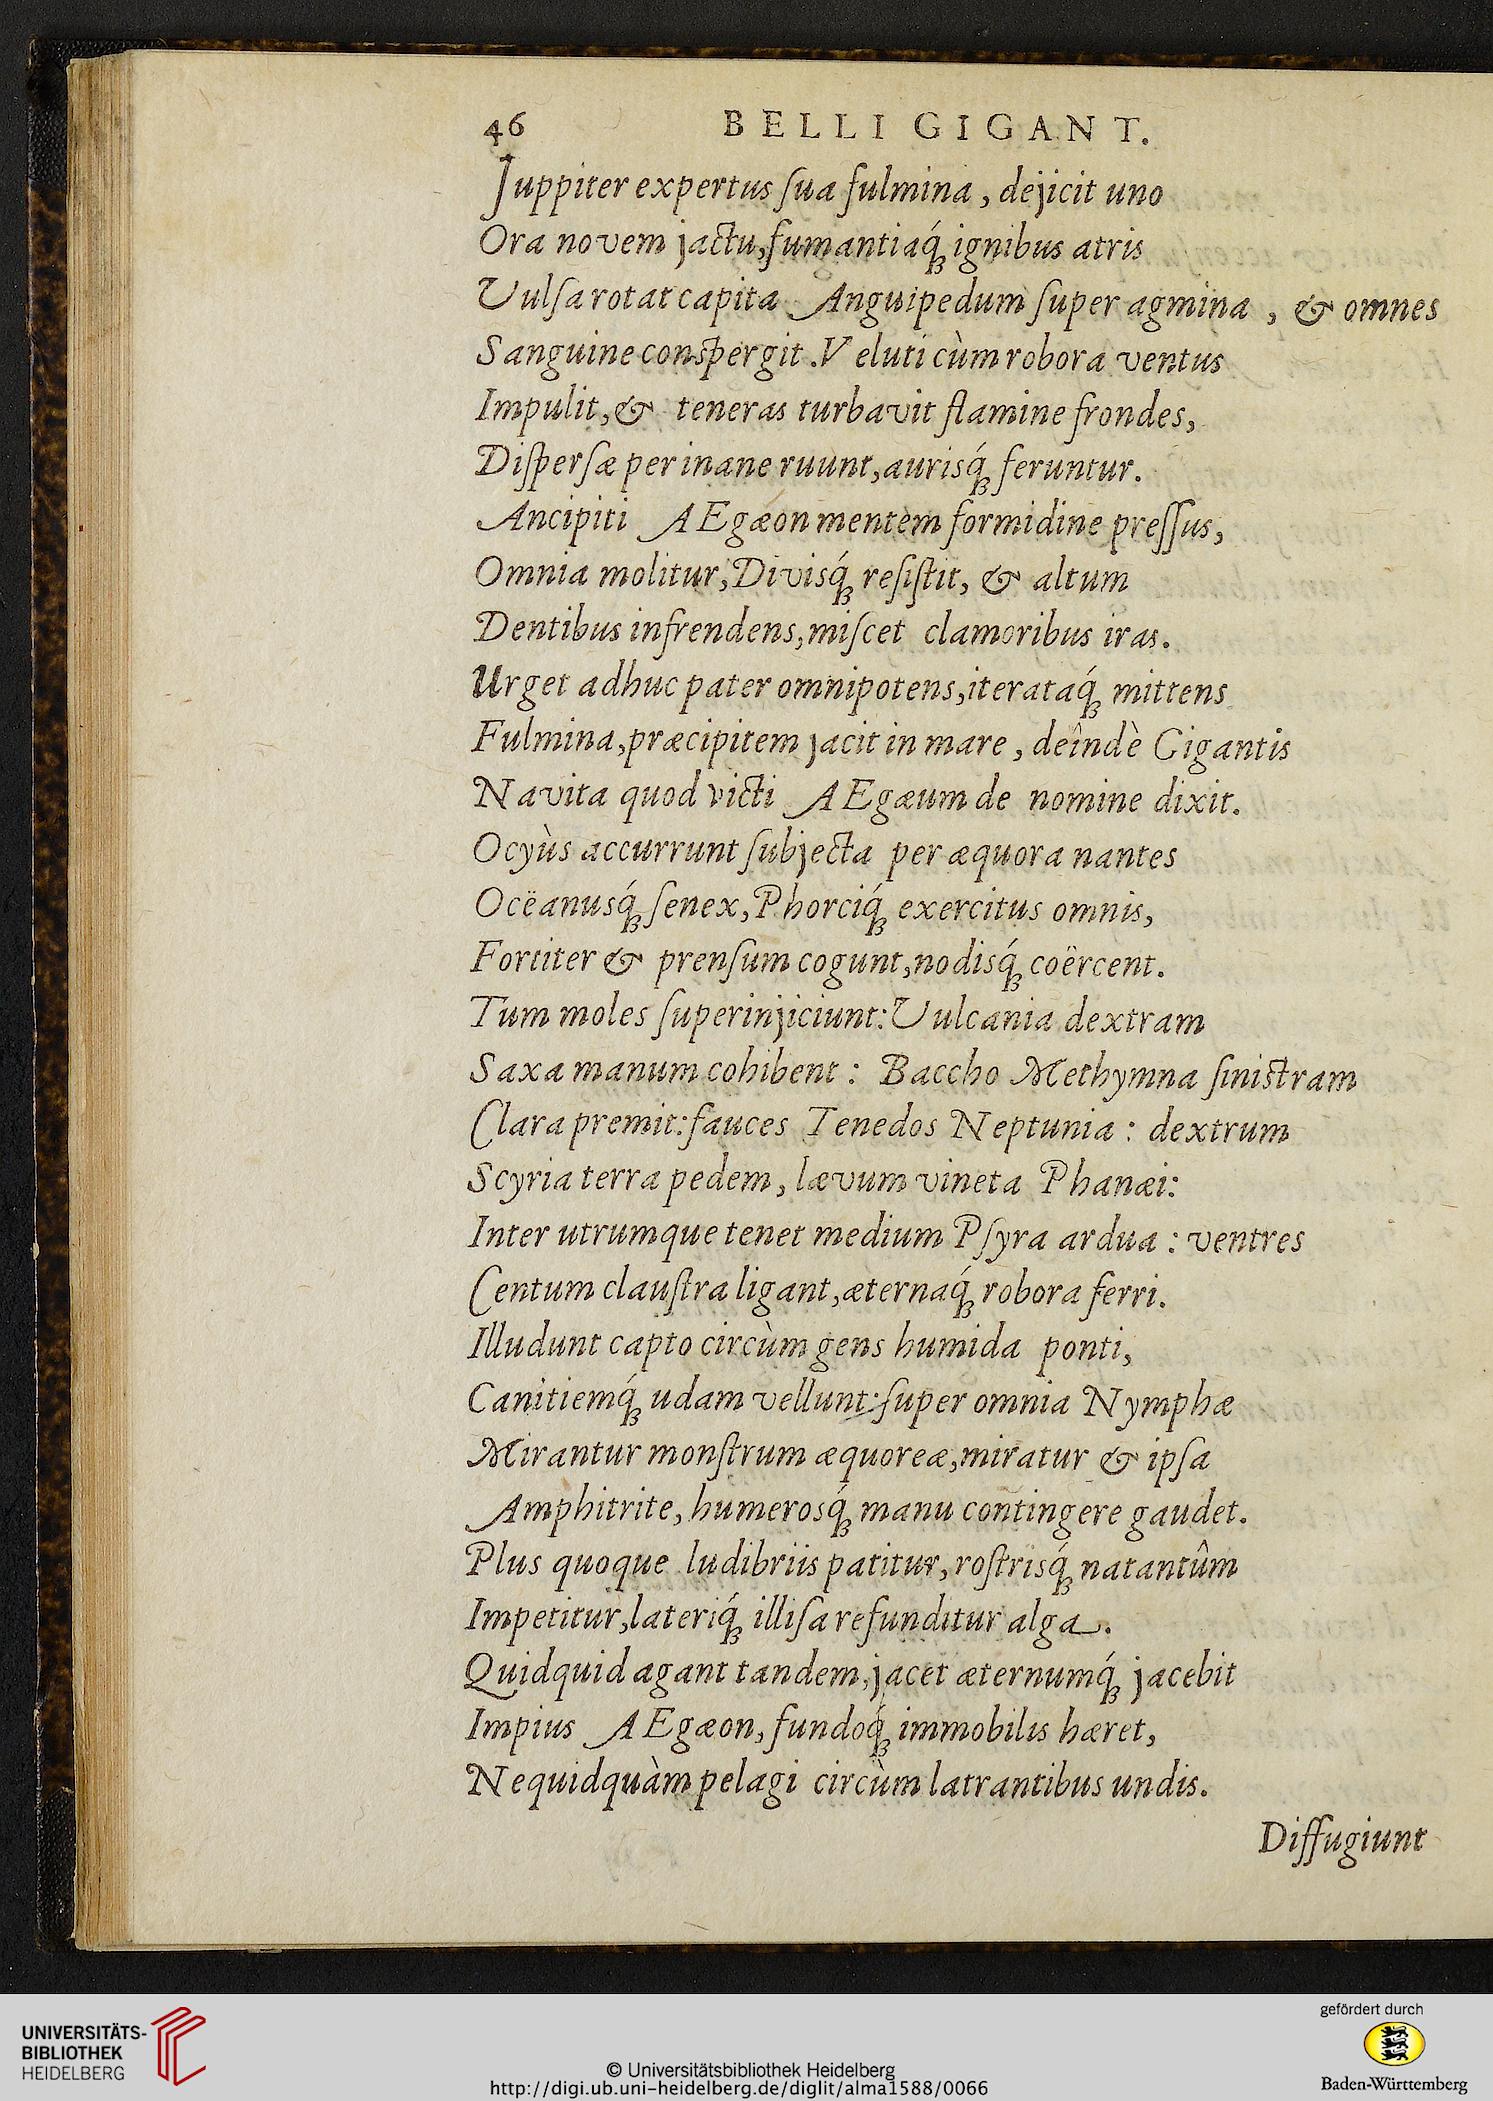 46 BELLI GIGANT.
Juppiter expertus sua fulmina, dejicit uno
Ora novem jactu, fumantiaq́; ignibus atris
Vulsa rotat capita Anguipedum super agmina, & omnes
Sanguine conspergit. Veluti cùm robora ventus
Impulit, & teneras turbavit flamine frondes,
Dispersæ per inane ruunt, aurisq́; feruntur.
Ancipiti AEgæon mentem formidine pressus,
Omnia molitur, Divisq́; resistit, & altum
Dentibus infrendens, miscet clamoribus iras.
Urget adhuc pater omnipotens, iterataq́; mittens
Fulmina, præcipitem jacit in mare, deîndè Gigantis
Navita quod victi AEgæum de nomine dixit.
Ocyùs accurrunt subjecta per æquora nantes
Ocëanusq́; senex, Phorciq́; exercitus omnis,
Fortiter & prensum cogunt, nodisq́; coërcent.
Tum moles superinjiciunt: Vulcania dextram
Saxa manum cohibent: Baccho Methymna sinistram
Clara premit: fauces Tenedos Neptunia: dextrum
Scyria terra pedem, lævum vineta Phanæi:
Inter utrumque tenet medium Psyra ardua: ventres
Centum claustra ligant, æternaq́; robora ferri.
Illudunt capto circùm gens humida ponti,
Canitiemq́; udam vellunt: super omnia Nymphæ
Mirantur monstrum æquoreæ, miratur & ipsa
Amphitrite, humerosq́; manu contingere gaudet.
Plus quoque ludibriis patitur, rostrisq́; natantûm
Impetitur, lateriq́; illisa refunditur alga.
Quidquid agant tandem, jacet æternumq́; jacebit
Impius AEgæon, fundoq́; immobilis hæret,
Nequidquàm pelagi circùm latrantibus undis.
Diffugiunt
UNIVERSITÄTS-
BIBLIOTHEK
HEIDELBERG
© Universitätsbibliothek Heidelberg
http://digi.ub.uni-heidelberg.de/diglit/alma1588/0066
gefördert durch
Baden-Württemberg